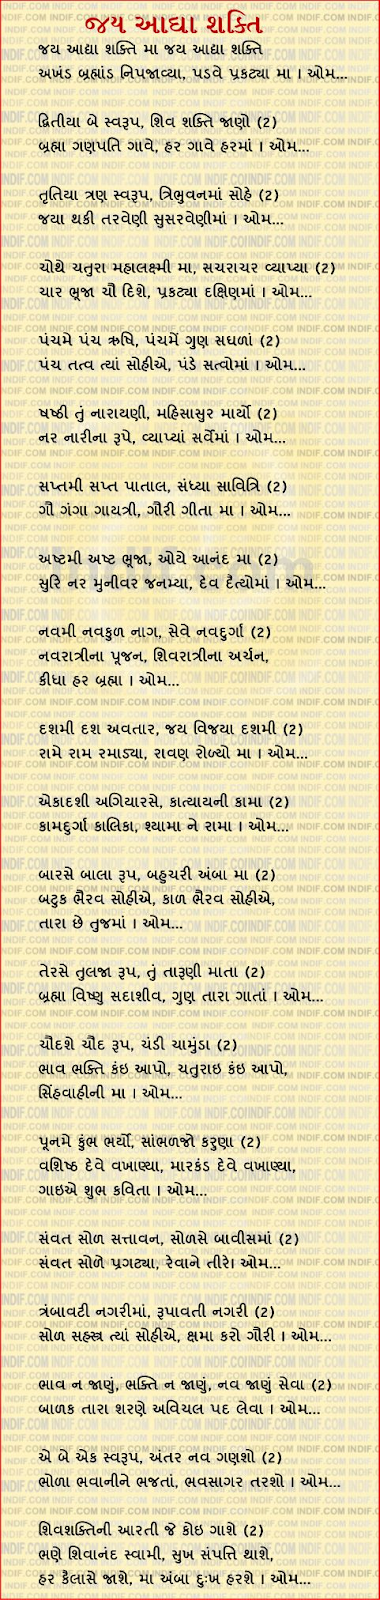 જય આદ્યા શક્તિ
જય આદ્યા શક્તિ મા જય આદ્યા શક્તિ
અખંડ બ્રહ્માંડ નિપજાવ્યા, પડવે પ્રકટ્યા મા । ઓમ...
દ્વિતીયા બે સ્વરૂપ, શિવ શક્તિ જાણો (2)
બ્રહ્મા ગણપતિ ગાવે, હર ગાવે હરમાં । ઓમ...
તૃતિયા ત્રણ સ્વરૂપ, ત્રિભુવનમાં સોહે (2)
જયા થકી તરવેણી સુસરવેણીમાં । ઓમ...
ચોથે ચતુરા મહાલક્ષ્મી મા, સચરાચર વ્યાપ્યા (2)
ચાર ભૂજા ચૌ દિશે, પ્રકટ્યા દક્ષિણમાં । ઓમ...
પંચમે પંચ ઋષિ, પંચમેં ગુણ સઘળાં (2)
પંચ તત્વ ત્યાં સોહીએ, પંડે સત્વોમાં । ઓમ...
ષષ્ઠી તું નારાયણી, મહિસાસુર માર્યો (2)
નર નારીના રૂપે, વ્યાપ્યાં સર્વેમાં । ઓમ...
સપ્તમી સપ્ત પાતાલ, સંધ્યા સાવિત્રિ (2)
ગૌ ગંગા ગાયત્રી, ગૌરી ગીતા મા । ઓમ...
અષ્ટમી અષ્ટ ભૂજા, ઓયે આનંદ મા (2)
સુરિ નર મુનીવર જનમ્યા, દેવ દૈત્યોમાં । ઓમ...
નવમી નવકુળ નાગ, સેવે નવદુર્ગા (2)
નવરાત્રીના પૂજન, શિવરાત્રીના અર્ચન,
કીધા હર બ્રહ્મા । ઓમ...
દશમી દશ અવતાર, જય વિજયા દશમી (2)
રામે રામ રમાડ્યા, રાવણ રોળ્યો મા । ઓમ...
એકાદશી અગિયારસે, કાત્યાયની કામા (2)
કામદુર્ગા કાલિકા, શ્યામા ને રામા । ઓમ...
બારસે બાલા રૂપ, બહુચરી અંબા મા (2)
બટુક ભૈરવ સોહીએ, કાળ ભૈરવ સોહીએ,
તારા છે તુજમાં । ઓમ...
તેરસે તુલજા રૂપ, તું તારૂણી માતા (2)
બ્રહ્મા વિષ્ણુ સદાશીવ, ગુણ તારા ગાતાં । ઓમ...
ચૌદશે ચૌદ રૂપ, ચંડી ચામુંડા (2)
ભાવ ભક્તિ કંઇ આપો, ચતુરાઇ કંઇ આપો,
સિંહવાહીની મા । ઓમ...
પૂનમે કુંભ ભર્યો, સાંભળજો કરુણા (2)
વશિષ્ઠ દેવે વખાણ્યા, મારકંડ દેવે વખાણ્યા,
ગાઇએ શુભ કવિતા । ઓમ...
સંવત સોળ સત્તાવન, સોળસે બાવીસમાં (2)
સંવત સોળે પ્રગટ્યા, રેવાને તીરે। ઓમ...
ત્રંબાવટી નગરીમાં, રૂપાવતી નગરી (2)
સોળ સહસ્ત્ર ત્યાં સોહીએ, ક્ષમા કરો ગૌરી । ઓમ...
ભાવ ન જાણું, ભક્તિ ન જાણું, નવ જાણું સેવા (2)
બાળક તારા શરણે અવિચલ પદ લેવા । ઓમ...
એ બે એક સ્વરૂપ, અંતર નવ ગણશો (2)
ભોળા ભવાનીને ભજતાં, ભવસાગર તરશો । ઓમ...
શિવશક્તિની આરતી જે કોઇ ગાશે (2)
ભણે શિવાનંદ સ્વામી, સુખ સંપત્તિ થાશે,
હર કૈલાસે જાશે, મા અંબા દુઃખ હરશે । ઓમ...